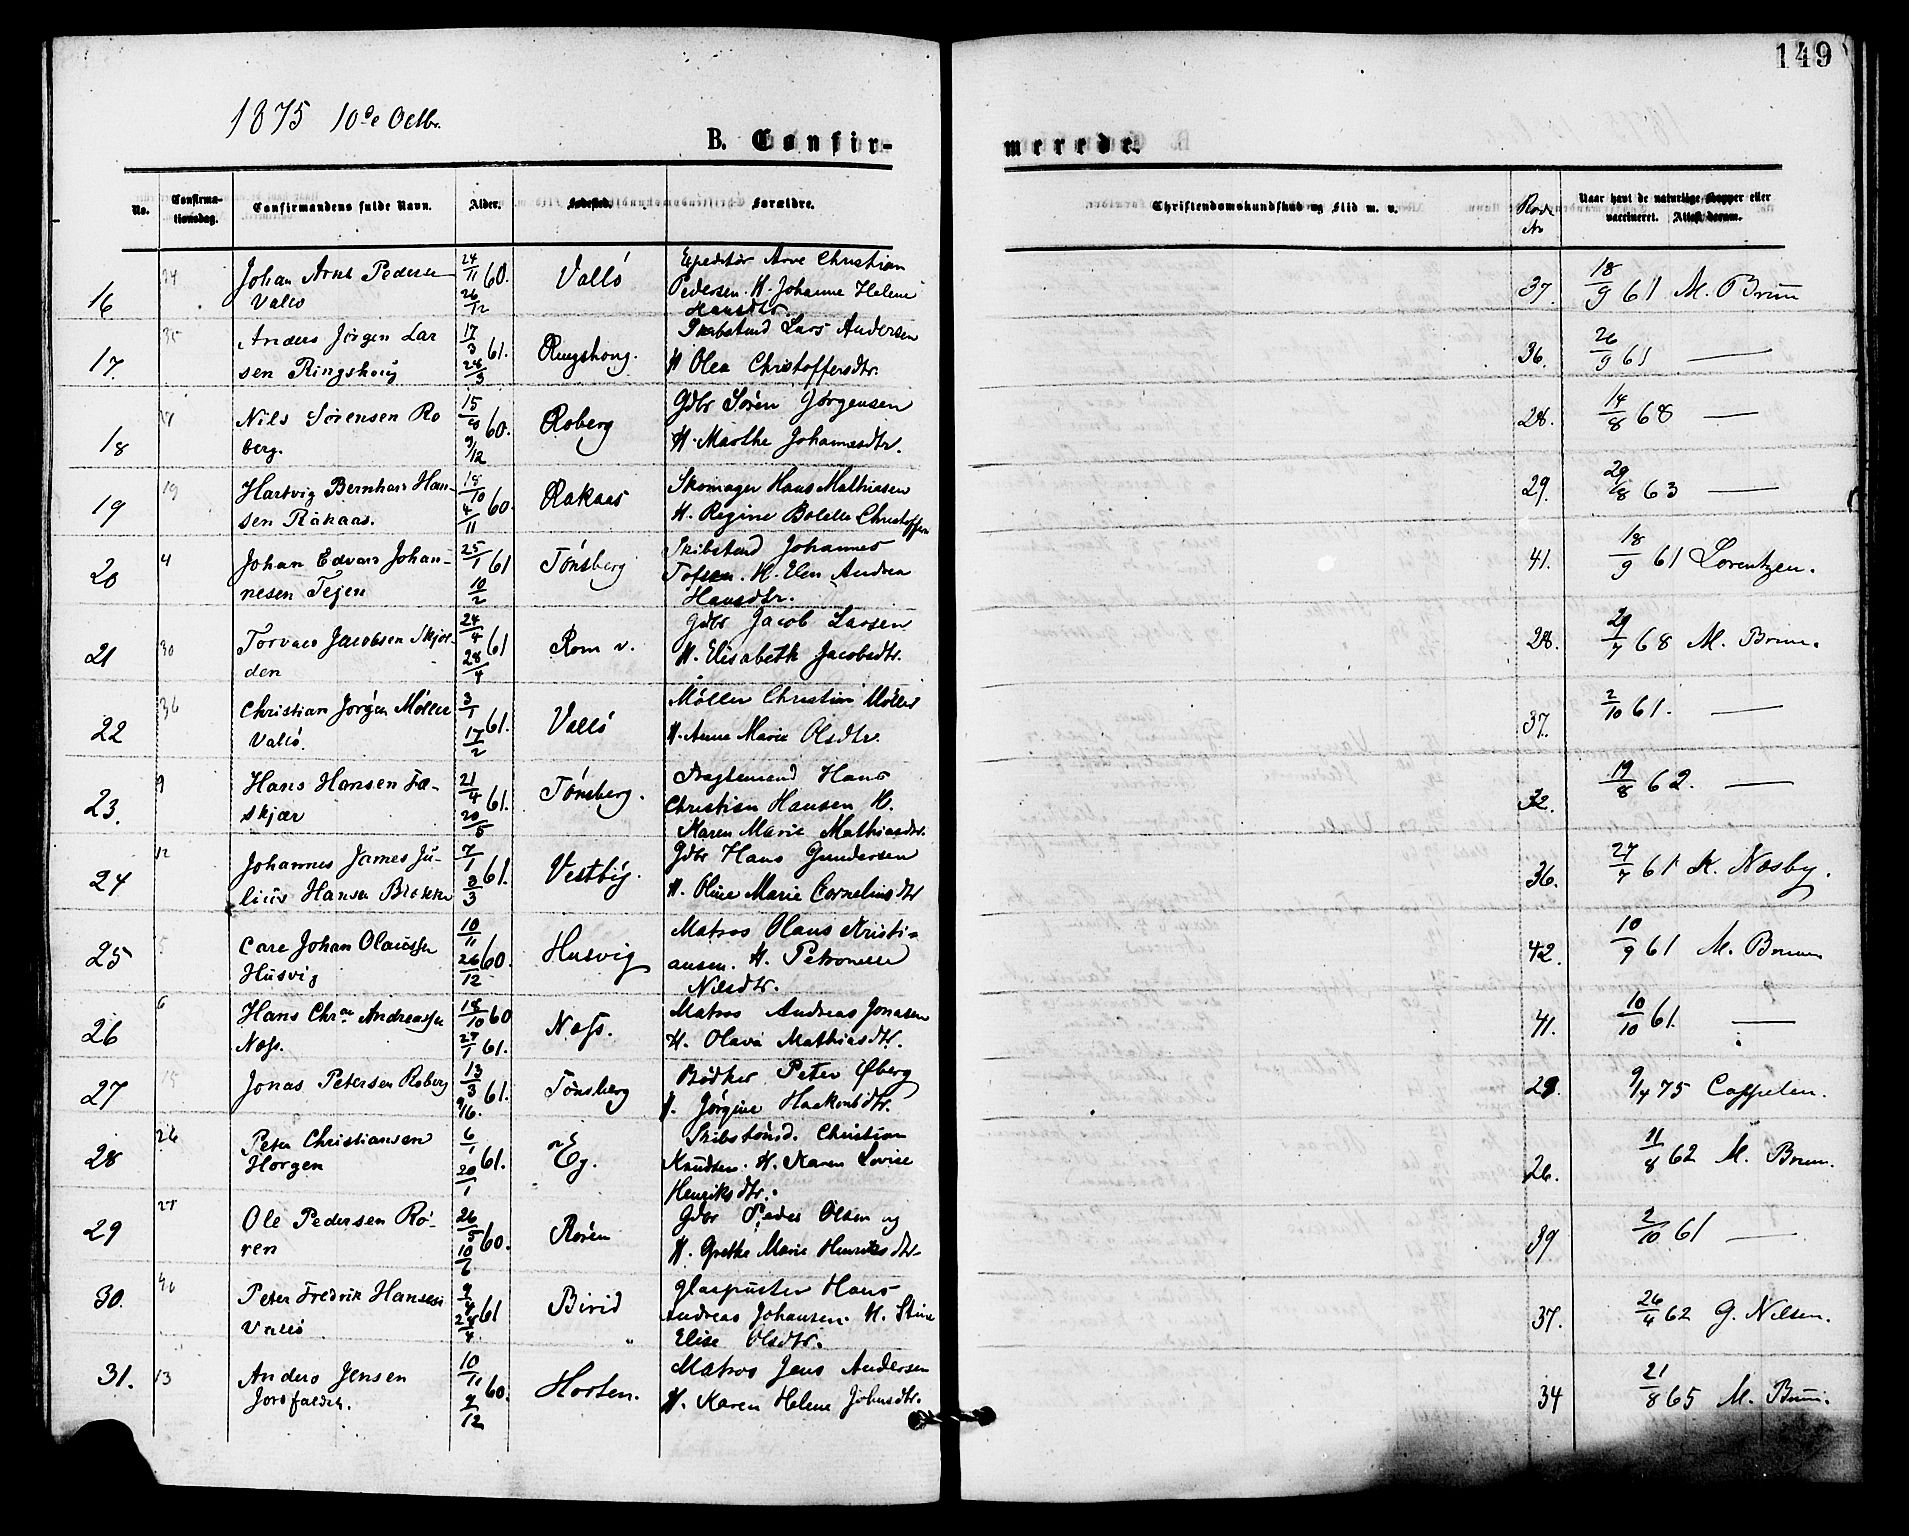 149
1875 10de Octbr.
B. Confir-
merede.
No.
Confirma-
tionsdag.
Confirmandens fulde Navn.
Alder.
Fødested.
Forældre.
Christendomskundskab og Flid m. v.
Rode
No
Naar havt de naturlige Kopper eller
vaccineret. Attest derom.
16 24 Johan Arnt Pedersen
Vallö
24/11 60.
26/12
Vallö
Expeditör Arve Christian
Pedersen. H. Johanne Helene
Hansdtr.
37. 18/9 61 M. Brun
17. 35 Anders Jörgen Lar
sen Ringshoug
17/3 61.
28/3
Ringshoug.
Skibstmd Lars Andersen
H Olea Christoffersdtr.
36. 26/9 61 —
18 Nils Sörensen Ro
berg.
15/10 60.
9/12
Roberg
Gdbr Sören Jörgensen
H. Marthe Johannesdtr.
28. 14/8 68 —
19 19 Hartvig Bernhard Han-
sen Råkaas.
18/10 60.
4/11
Rakaas
Skomager Hans Mathiasen
H. Regine Bolette Christoffers
29. 29/8 63 —
20 4 Johan Edvard Johan-
nesen Tejen
25/1 61
10/2
Tönsberg
Skibstmd Johannes
Tofsen. H. Elen Andrea
Hansdtr.
41. 18/9 61 Lorentzen.
21 30 Torvald Jacobsen Skjer-
den
24/4 61
28/4
Rom v.
Gdbr Jacob Larsen
H. Elisabeth Jacobsdtr.
28. 29/7 68 M. Brun.
22 36 Christian Jörgen Möller
Vallö.
3/1 61.
17/2
Vallö
Möller Christian Möller
H. Anne Marie Olsdtr.
37. 2/10 61. —
23. 9 Hans Hansen Fæ-
skjær
21/4 61.
20/5
Tönsberg.
Fragtemand Hans
Christian Hansen H.
Karen Marie Mathiasdtr.
32. 19/8 62. —
24 12 Johannes James Ju-
lius Hansen Brekke
7/1 61.
3/3
Vestby.
Gdbr Hans Gundersen
H. Oline Marie Corneliusdtr
36. 27/7 61 K. Næsby.
25 5 Carl Johan Olaussen
Husvig
10/11 60.
26/12
Husvig
Matros Olaus Kristi-
ansen. H. Petronelle
Nilsdtr.
42. 10/9 61 M. Brun
26 6 Hans Chr.an Andreassen
Næss.
18/10 60
27/1 61.
Næss.
Matros Andreas Jonasen
H. Olava Mathiasdtr.
41. 10/10 61. —
27 15 Jonas Petersen Roberg
13/3 61.
9/16.
Tönsberg
Bödker Peter Øberg
H. Jörgine Haakonsdtr.
29. 9/4 75 Cappelen.
28 26 Peter Christiansen
Horgen
6/1 61.
20/1
Eg.
Skibstömd. Christian
Knudsen. H. Karen Lovise
Henriksdtr.
26. 11/8 62 M. Brun.
29 28 Ole Pedersen Rö-
ren
26/5 60.
10/6
Rören
Gdbr Peder Olsen og
H. Grethe Marie Henriksdtr.
39 2/10 61 —
30. 40 Peter Fredrik Hansen
Vallö
9/4 61
28/4
Birid
Glaspuster Hans
Andreas Johansen. H. Stine
Elise Olsdtr.
37. 26/4 62 G. Nilsen.
31. 13 Anders Jensen
Jordfalden.
10/11 60.
9/12
Horten.
Matros Jens Andersen
H. Karen Helene Johnsdtr.
34 21/8 65 M. Brun.